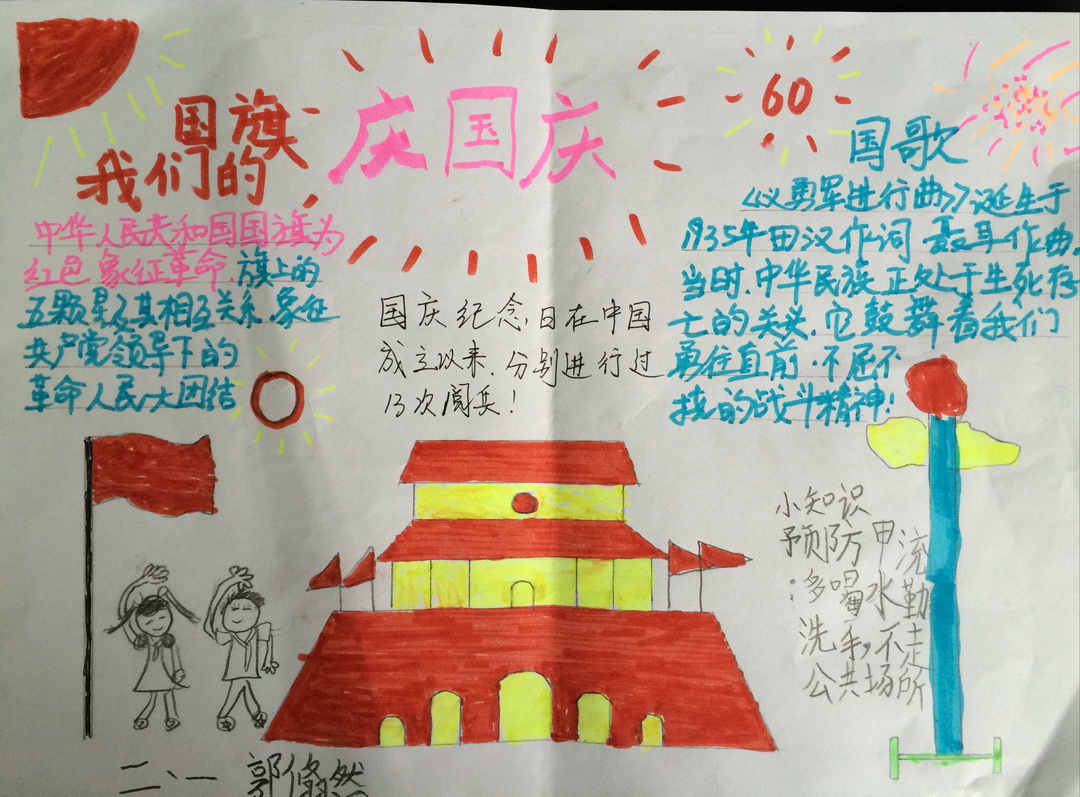 庆国庆
60
国旗
我们的
中华人民共和国国旗为
红色象征革命.旗上的
五颗星及其相互关系象征
共产党领导下的
革命人民大团结
国庆纪念日在中国
成立以来.分别进行过
13次阅兵!
国歌
《义勇军进行曲》诞生于
1935年田汉作词 聂耳作曲.
当时.中华民族正处于生死存
亡的关头.它鼓舞着我们
勇往直前.不屈不
挠的战斗精神!
小知识
预防甲流
:多喝水勤
洗手,不走
公共场所
二、一 郭翛然